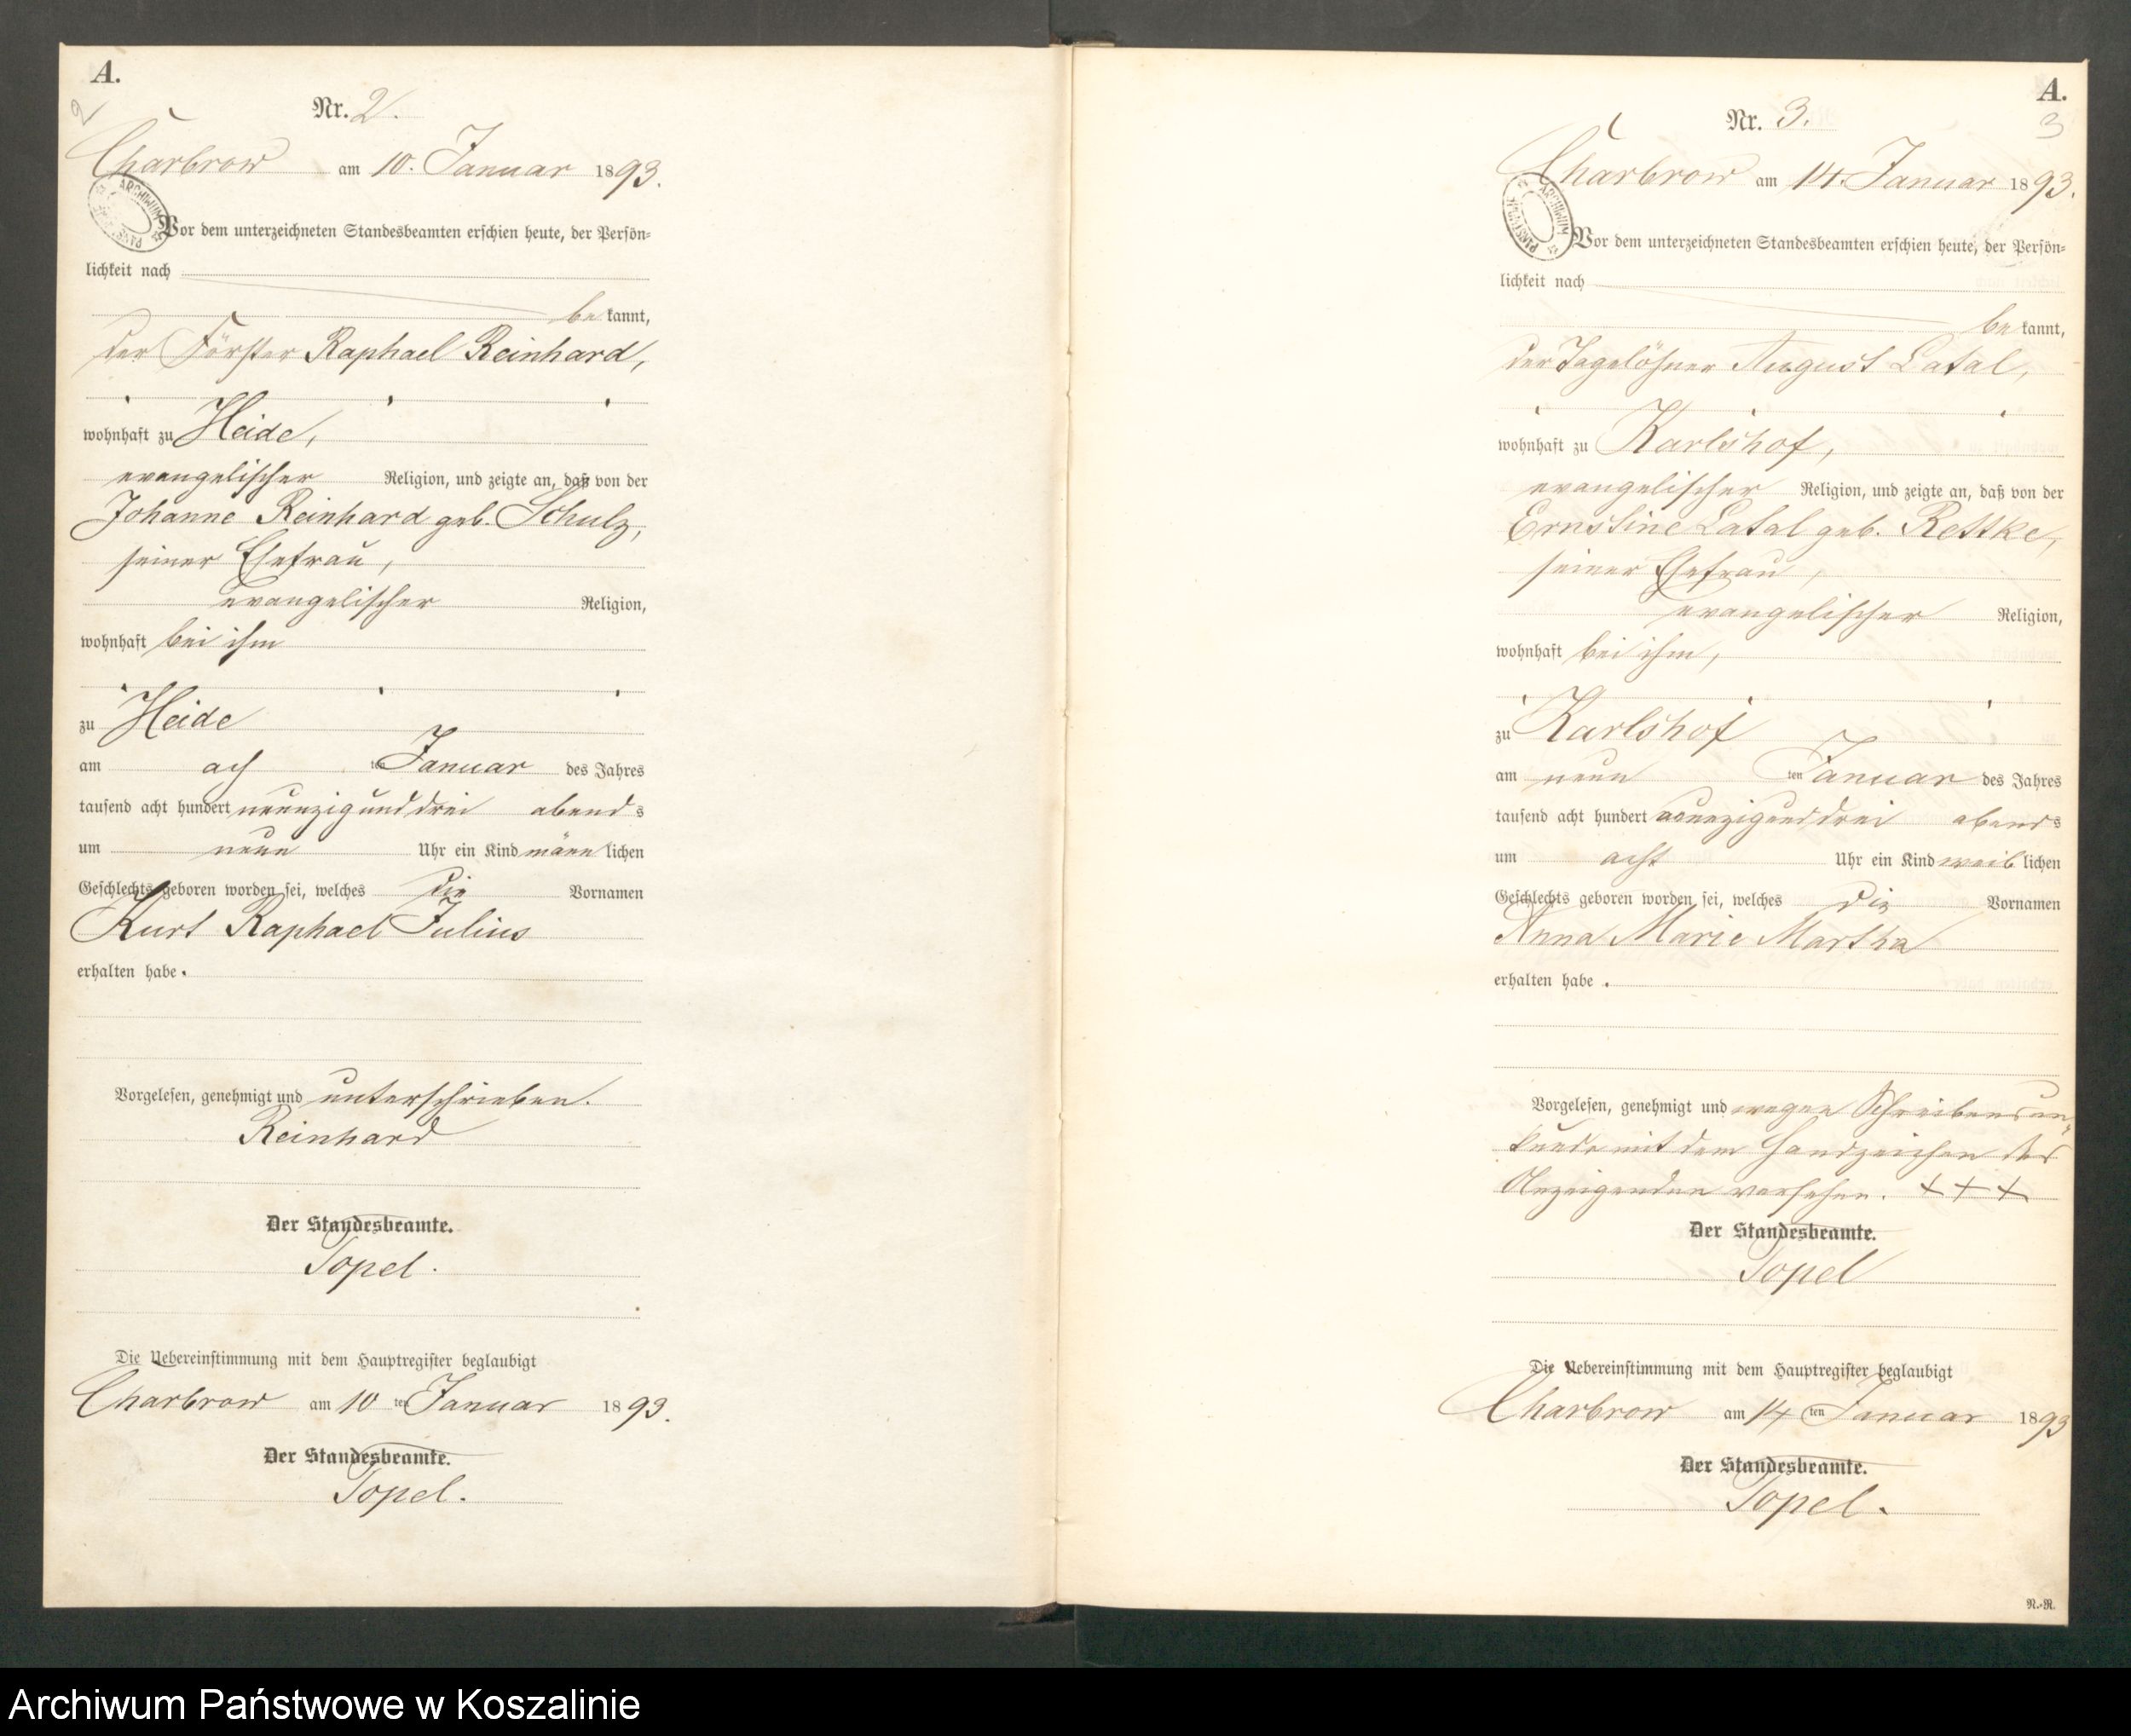 A.
2
Nr. 2.
Charbrow am 10. Januar 1893.
ARCHIWUM
Vor dem unterzeichneten Standesbeamten erschien heute, der Persön=
lichkeit nach
be kannt,
der Förster Raphael Reinhard,
wohnhaft zu Heide,
evangelischer Religion, und zeigte an, daß von der
Johanne Reinhard geb. Schulz,
seiner Ehefrau,
evangelischer Religion,
wohnhaft bei ihm
zu Heide
am ach ten Januar des Jahres
tausend acht hundert neunzig und drei abends
um neun Uhr ein Kind männlichen
Geschlechts geboren worden sei, welches die Vornamen
Kurt Raphael Julius
erhalten habe.
Vorgelesen, genehmigt und unterschrieben.
Reinhard
Der Standesbeamte.
Topel.
Die Uebereinstimmung mit dem Hauptregister beglaubigt
Charbrow am 10 ten Januar 1893.
Der Standesbeamte.
Topel.
A.
3
Nr. 3.
Charbrow am 14. Januar 1893.
ARCHIWUM
Vor dem unterzeichneten Standesbeamten erschien heute, der Persön=
lichkeit nach
be kannt,
der Tagelöhner August Latal,
wohnhaft zu Karlshof,
evangelischer Religion, und zeigte an, daß von der
Ernstine Latal geb. Rettke,
seiner Ehefrau,
evangelischer Religion,
wohnhaft bei ihm,
zu Karlshof
am neun ten Januar des Jahres
tausend acht hundert neunzig und drei abends
um acht Uhr ein Kind weiblichen
Geschlechts geboren worden sei, welches die Vornamen
Anna Marie Martha
erhalten habe.
Vorgelesen, genehmigt und wegen Schreibensun=
kunde mit dem Handzeichen des
Anzeigenden versehen. +++
Der Standesbeamte.
Topel
Die Uebereinstimmung mit dem Hauptregister beglaubigt
Charbrow am 14 ten Januar 1893
Der Standesbeamte.
Topel.
N.-R.
Archiwum Państwowe w Koszalinie